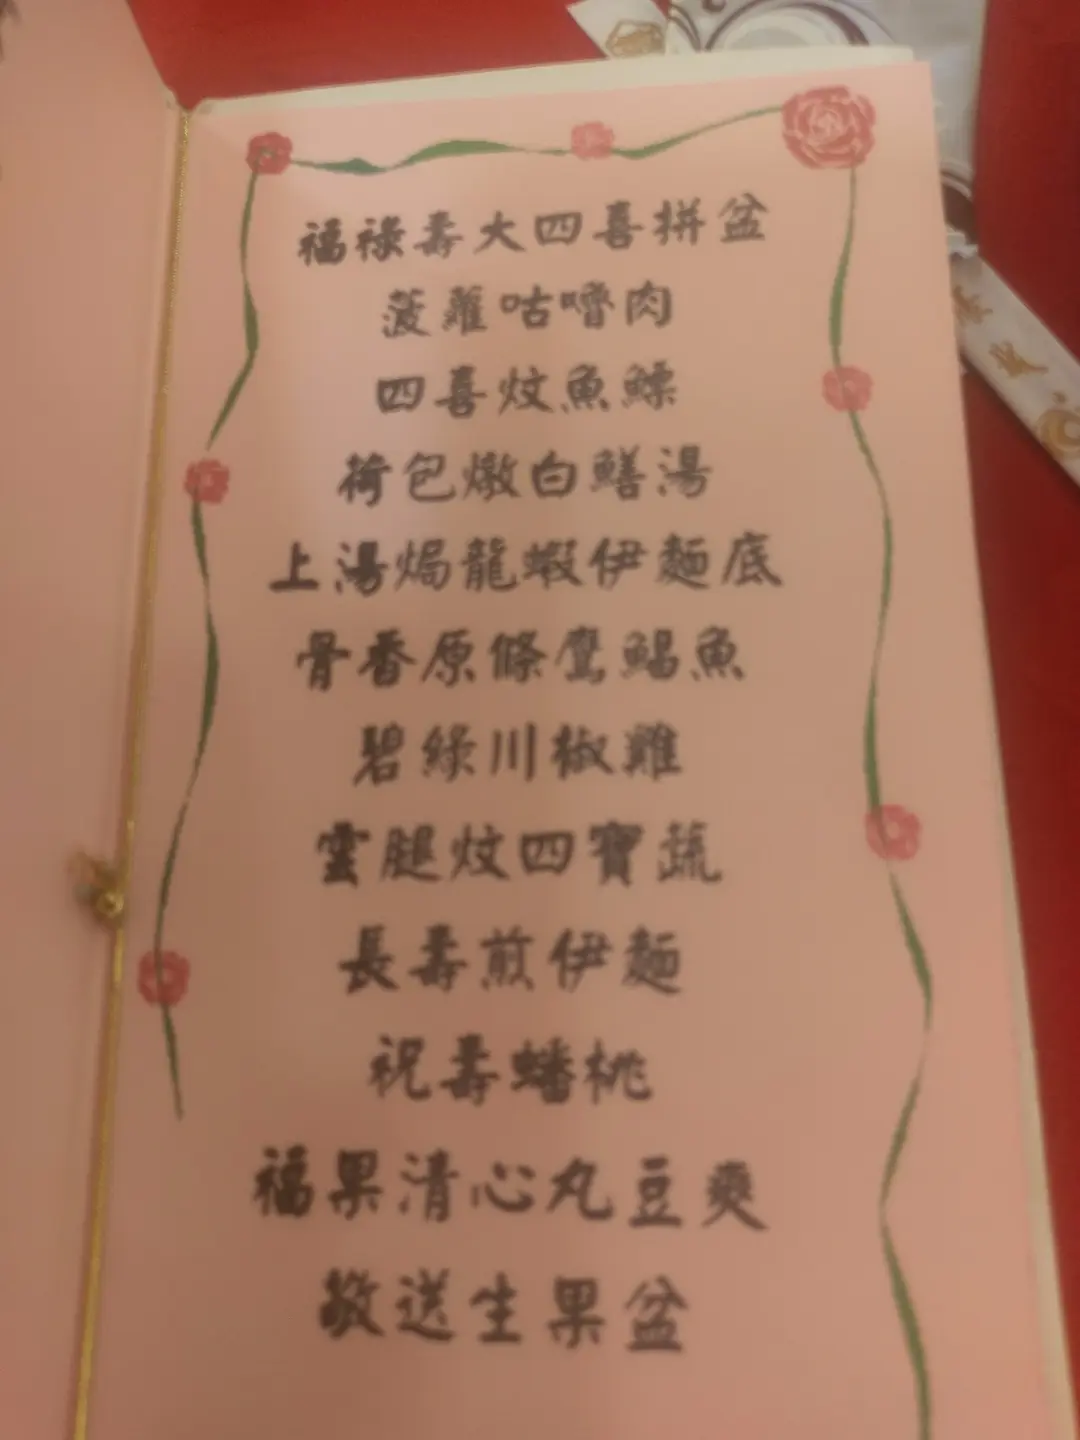 福祿壽大四喜拼盆
菠蘿咕嚕肉
四喜炆魚鰾
荷包燉白鱔湯
上湯焗龍蝦伊麵底
骨香原條鷹鯧魚
碧綠川椒雞
雲腿炆四寶蔬
長壽煎伊麵
祝壽蟠桃
福果清心丸豆爽
敬送生果盆